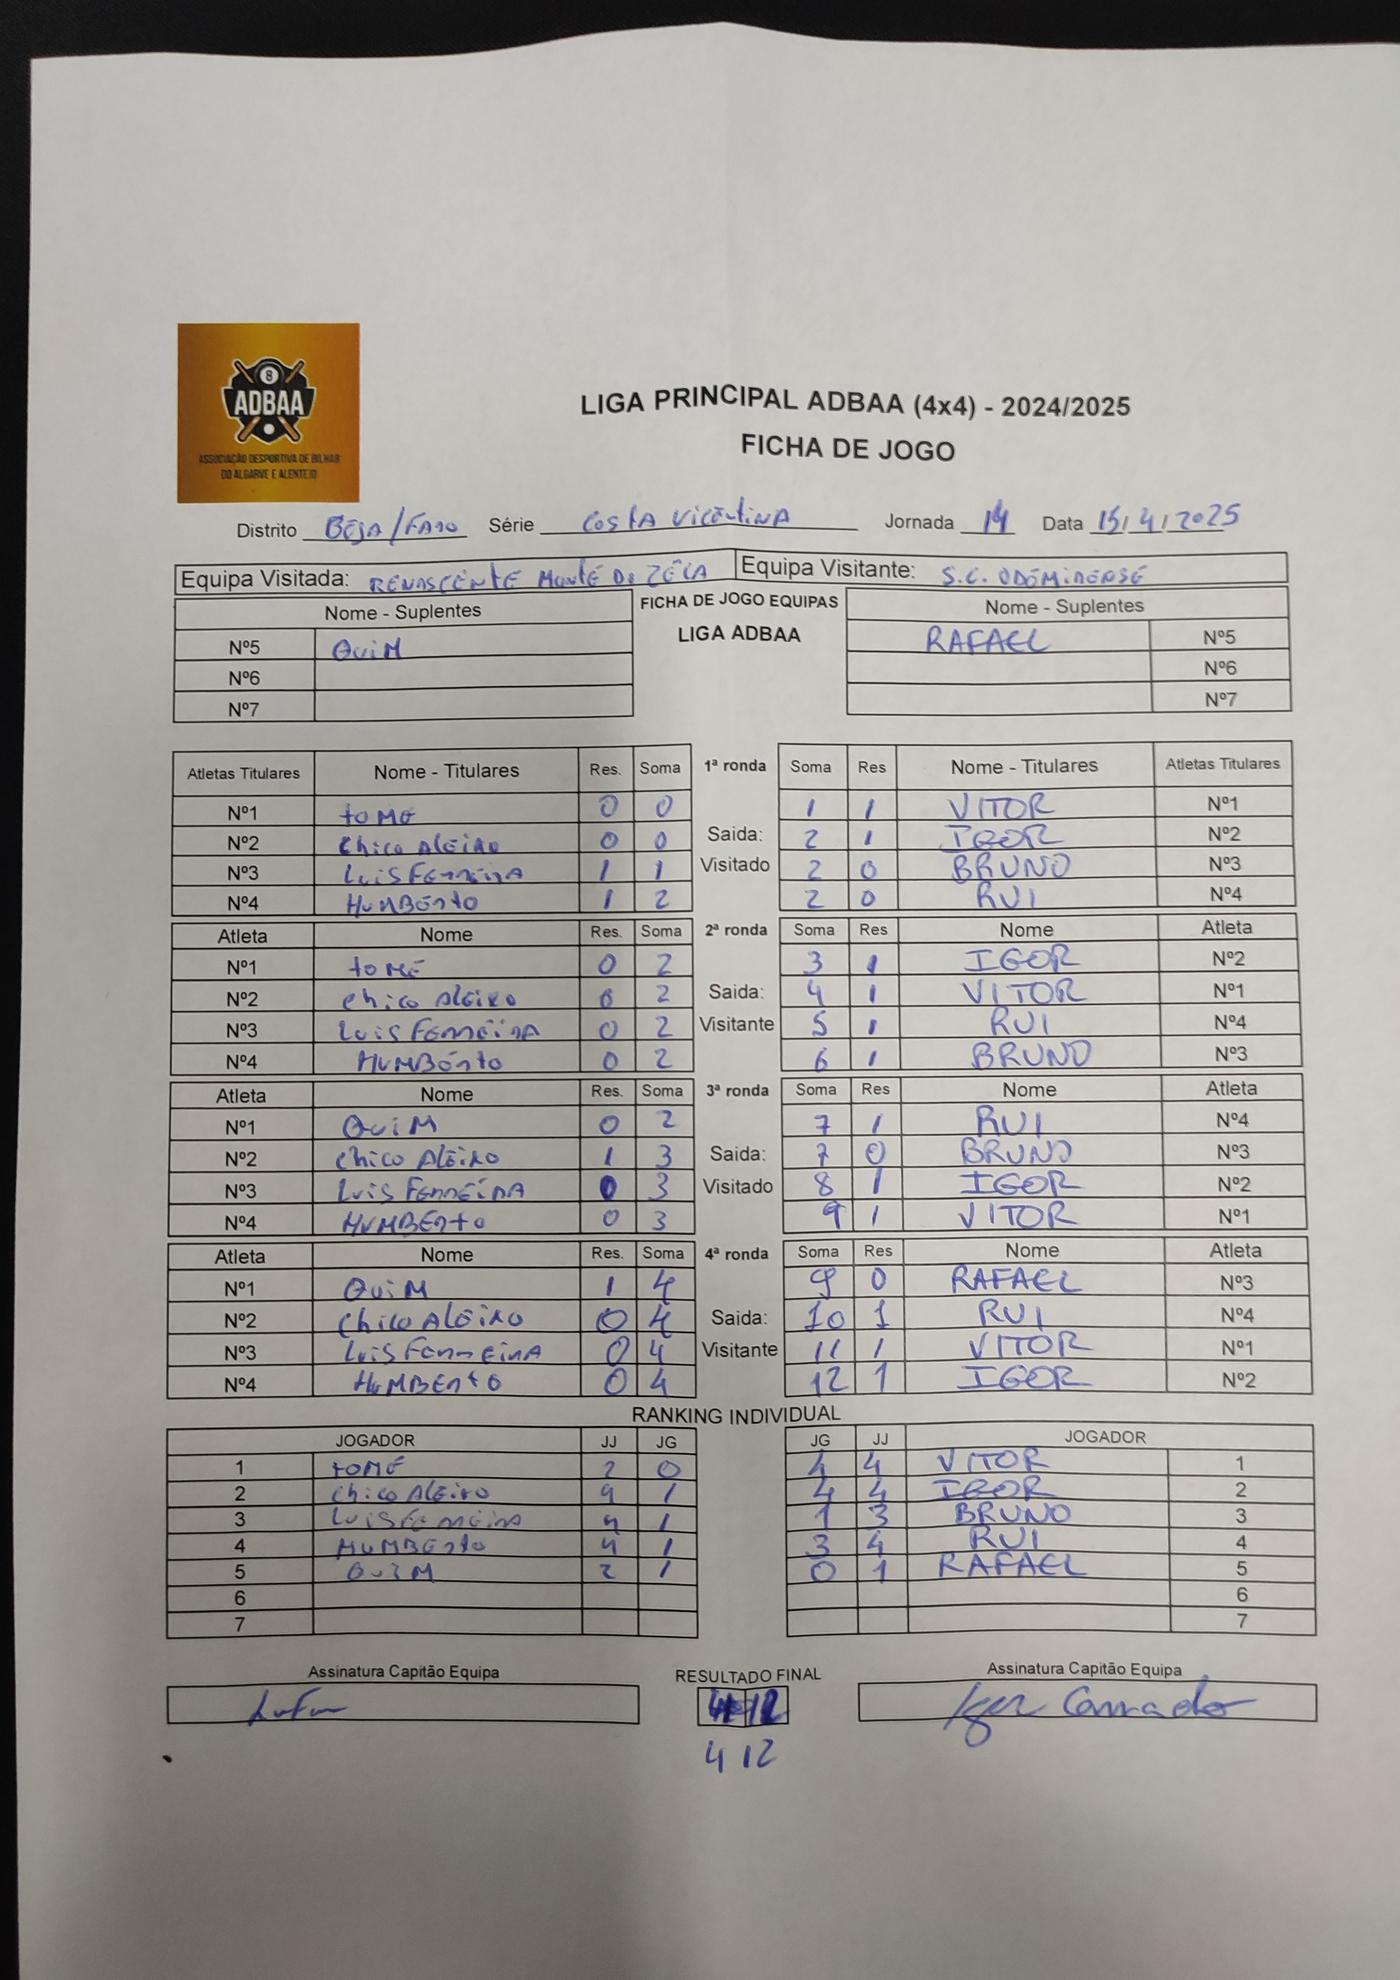 8
ADBAA
ASSOCIAÇÃO DESPORTIVA DE BILHAR
DO ALGARVE E ALENTEJO
LIGA PRINCIPAL ADBAA (4x4) - 2024/2025
FICHA DE JOGO
Distrito BEJA/FARO Série COSTA VICENTINA Jornada 14 Data 15/4/2025
Equipa Visitada: RENASCENTE MONTE DO ZÉCA Equipa Visitante: S.C. ODEMIRENSE
Nome - Suplentes FICHA DE JOGO EQUIPAS Nome - Suplentes
Nº5 QUIM LIGA ADBAA RAFAEL Nº5
Nº6 Nº6
Nº7 Nº7
Atletas Titulares Nome - Titulares Res. Soma 1ª ronda Soma Res Nome - Titulares Atletas Titulares
Nº1 TOMÉ 0 0 1 1 VITOR Nº1
Nº2 Chico ALEIXO 0 0 Saida: 2 1 IGOR Nº2
Nº3 LUIS FERREIRA 1 1 Visitado 2 0 BRUNO Nº3
Nº4 HUMBERTO 1 2 2 0 RUI Nº4
Atleta Nome Res. Soma 2ª ronda Soma Res Nome Atleta
Nº1 TOMÉ 0 2 3 1 IGOR Nº2
Nº2 Chico ALEIXO 0 2 Saida: 4 1 VITOR Nº1
Nº3 LUIS FERREIRA 0 2 Visitante 5 1 RUI Nº4
Nº4 HUMBERTO 0 2 6 1 BRUNO Nº3
Atleta Nome Res. Soma 3ª ronda Soma Res Nome Atleta
Nº1 QUIM 0 2 7 1 RUI Nº4
Nº2 Chico ALEIXO 1 3 Saida: 7 0 BRUNO Nº3
Nº3 LUIS FERREIRA 0 3 Visitado 8 1 IGOR Nº2
Nº4 HUMBERTO 0 3 9 1 VITOR Nº1
Atleta Nome Res. Soma 4ª ronda Soma Res Nome Atleta
Nº1 QUIM 1 4 9 0 RAFAEL Nº3
Nº2 Chico ALEIXO 0 4 Saida: 10 1 RUI Nº4
Nº3 LUIS FERREIRA 0 4 Visitante 11 1 VITOR Nº1
Nº4 HUMBERTO 0 4 12 1 IGOR Nº2
RANKING INDIVIDUAL
JOGADOR JJ JG JG JJ JOGADOR
1 TOMÉ 2 0 4 4 VITOR 1
2 Chico ALEIXO 4 1 4 4 IGOR 2
3 LUIS FERREIRA 4 1 1 3 BRUNO 3
4 HUMBERTO 4 1 3 4 RUI 4
5 QUIM 2 1 0 1 RAFAEL 5
6 6
7 7
Assinatura Capitão Equipa RESULTADO FINAL Assinatura Capitão Equipa
4 12 Igor
4 12